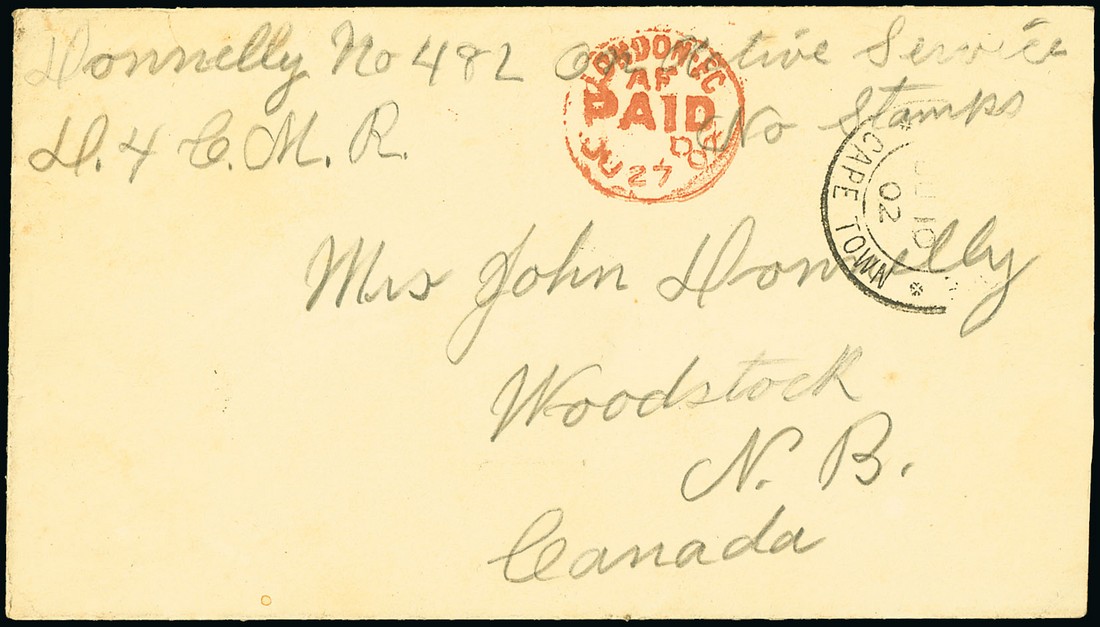 Donnelly No 482 On Active Service
D. 4 C. M. R. No Stamps
LONDON.EC
AF
PAID
27
02
CAPE TOWN
10
02
Mrs John Donnelly
Woodstock
N. B.
Canada